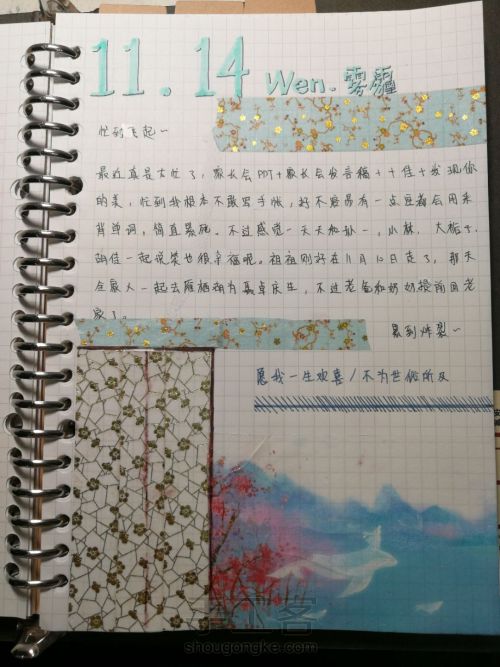 11.14 Wen. 雾霾
忙到飞起～
最近真是太忙了，家长会PPT+家长会发言稿+十佳+发现你
的美，忙到我根本不敢写手帐，好不容易有一点空都会用来
背单词，简直累死。不过感觉一天天和扒一，小林，大栀子，
胡佳一起说笑也很幸福呢。祖祖刚好在11月10日走了，那天
全家人一起去雁栖湖为聂卓庆生，不过老爸和奶奶提前回老
家了。
累到炸裂～
愿我一生欢喜/不为世俗所及
手工客
shougongke.com